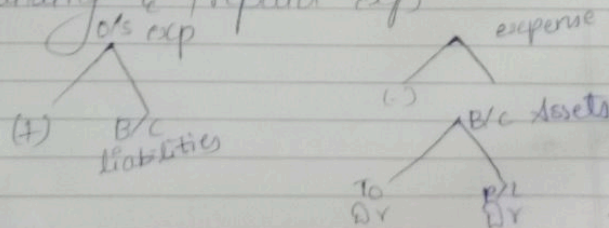 O/s exp
expense
(+)
B/C
liabilities
(-)
B/C Assets
To
Dr
P/L
Dr